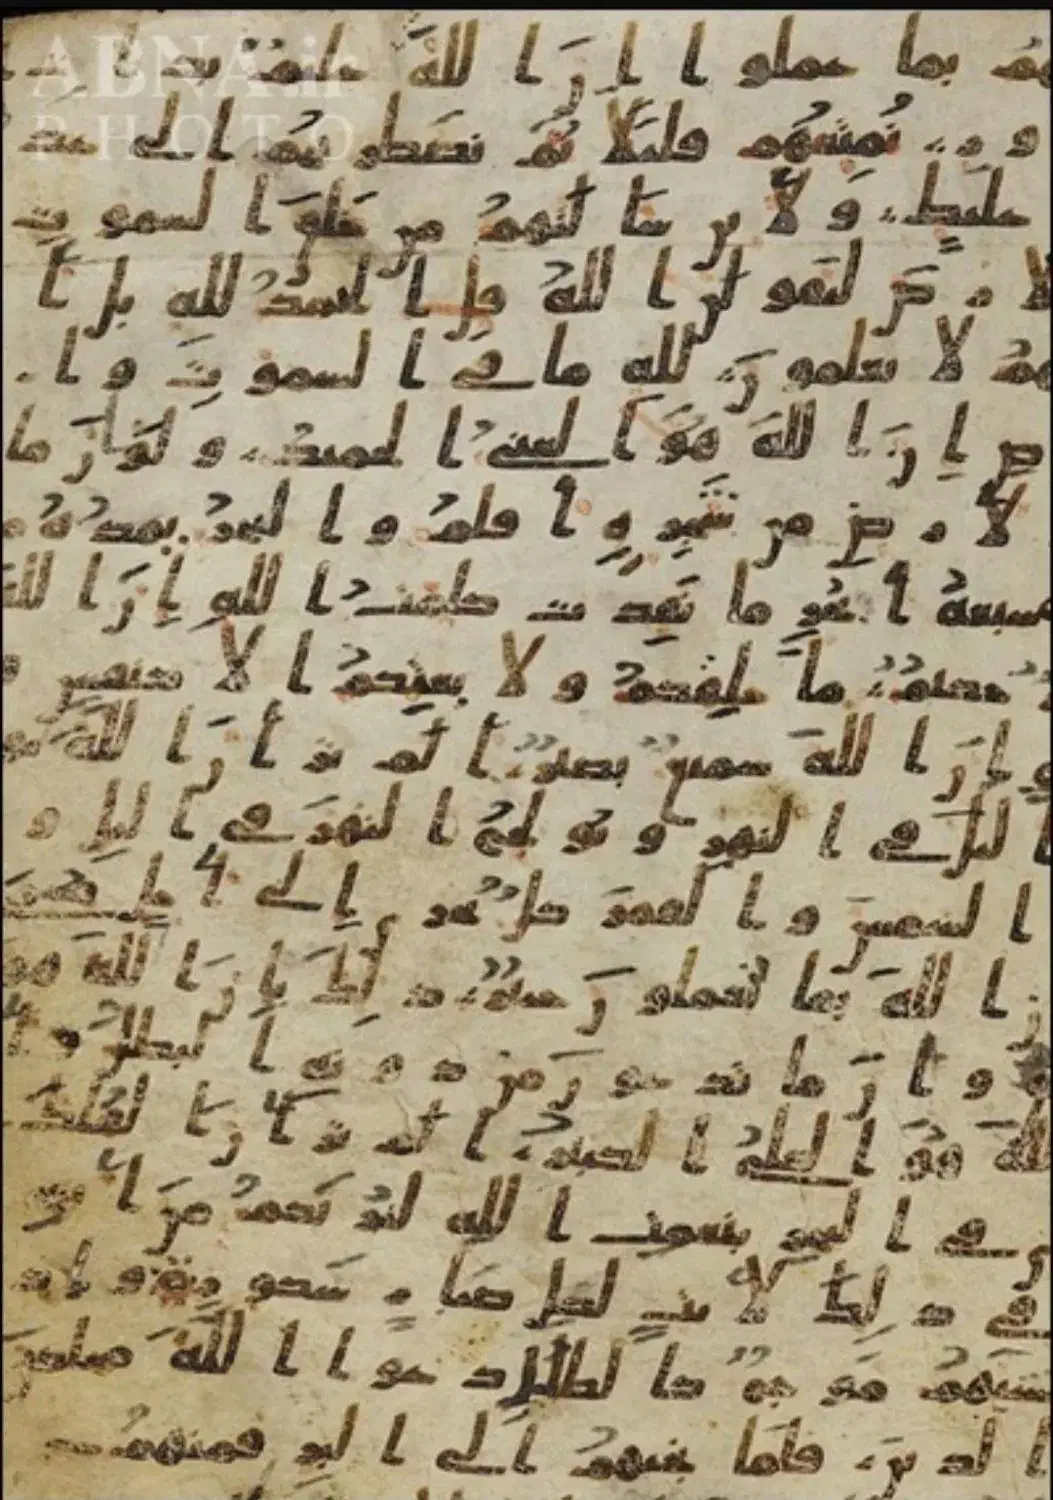 ABNA.ir
PHOTO
هم بما عملوا ان الله عليم بذا
و ر نمتعهم قليلا ثم نضطرهم الى عذ
غليظ ولئن سا لتهم من خلق السموت
لا رض ليقولن الله قل الحمد لله بل ا
هم لا يعلمون لله ما في السموت وا
ض ان الله هو الغني الحميد ولو ان ما
لا رض من شجرة اقلم والبحر يمده م
سبعة ابحر ما نفدت كلمت الله ان الله
حكيم ما خلقكم ولا بعثكم الا كنفس
ة ان الله سميع بصير الم تر ان الله يو
اليل في النهر ويولج النهر في اليل و
الشمس والقمر كل يجر ى الى اجل مسمى
ن الله بما تعملون خبير ذلك بان الله هو
وان ما يدعون من دونه البطل وا
الله هو العلي الكبير الم تر ان الفلك
ري في البحر بنعمت الله ليريكم من ا
في ذلك لايت لكل صبا ر شكور واذا
غشيهم موج كالظلل دعوا الله مخلصين
ا لدين فلما نجيهم الى البر فمنهم